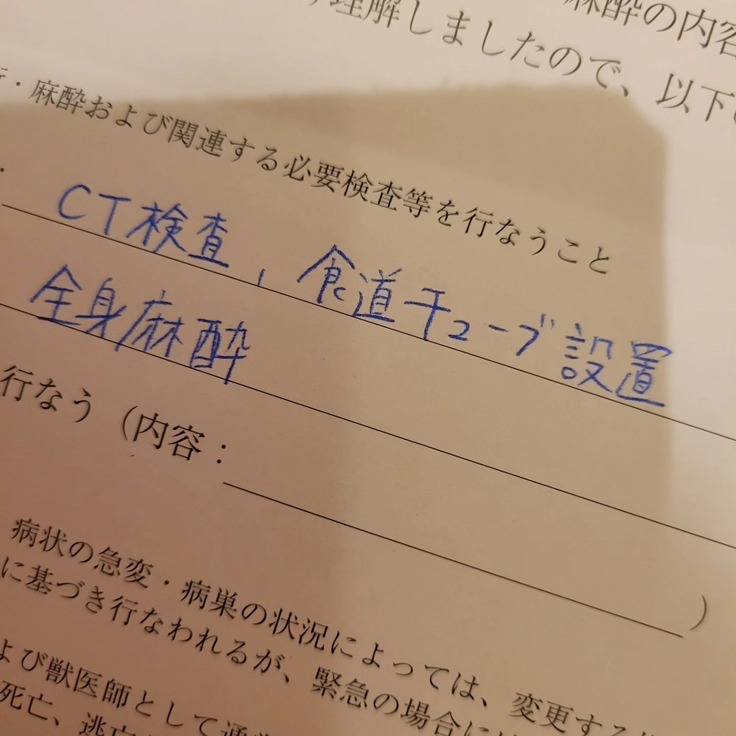 麻酔の内容
理解しましたので、以下
・麻酔および関連する必要検査等を行なうこと
CT検査，食道チューブ設置
全身麻酔
行なう（内容：　　　）
病状の急変・病巣の状況によっては、変更する
に基づき行なわれるが、緊急の場合には
よび獣医師として通常
死亡、逃亡